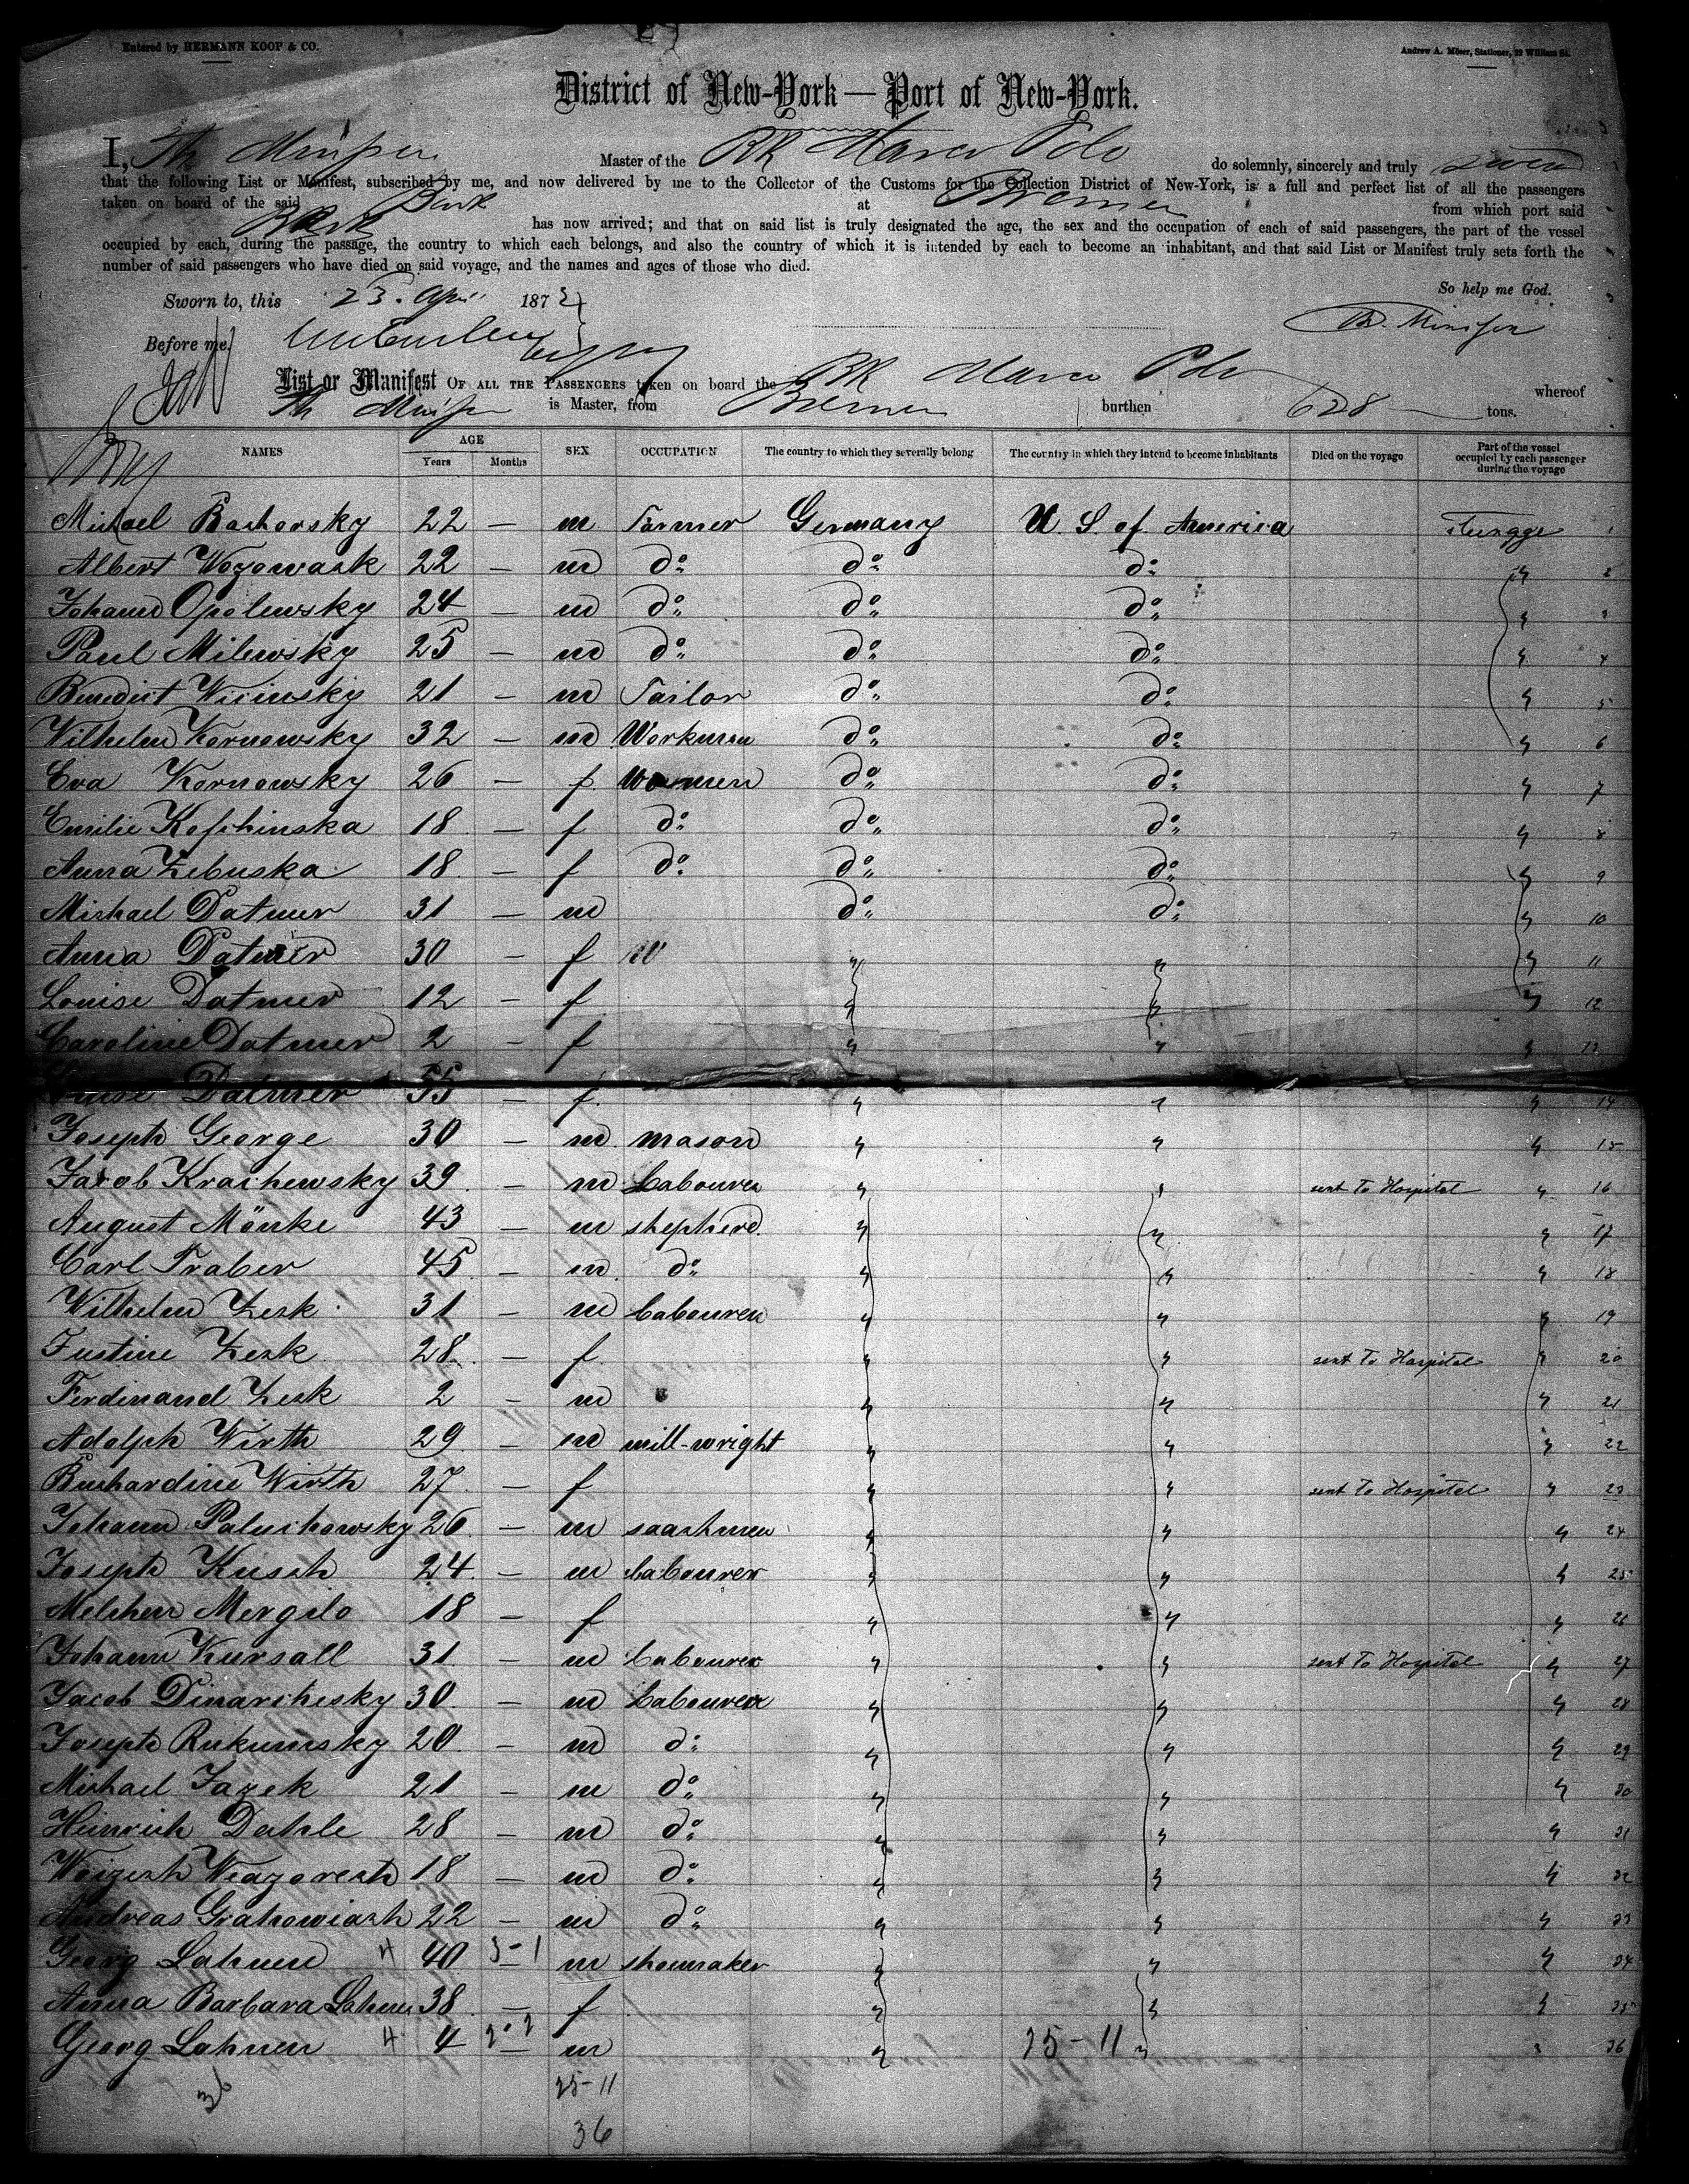 Entered by HERMANN KOOP & CO.
Andrew A. Möser, Stationer, 22 William St.
District of New-York — Port of New-York.
I, Th Master of the Bk Marco Polo do solemnly, sincerely and truly swear
that the following List or Manifest, subscribed by me, and now delivered by me to the Collector of the Customs for the Collection District of New-York, is a full and perfect list of all the passengers
taken on board of the said Bark at Bremen from which port said
Bark has now arrived; and that on said list is truly designated the age, the sex and the occupation of each of said passengers, the part of the vessel
occupied by each, during the passage, the country to which each belongs, and also the country of which it is intended by each to become an inhabitant, and that said List or Manifest truly sets forth the
number of said passengers who have died on said voyage, and the names and ages of those who died.
So help me God.
Sworn to, this 23. April 187
Before me,
List or Manifest OF ALL THE PASSENGERS taken on board the Bk Marco Polo whereof
Th is Master, from Bremen burthen 628 tons.
NAMES AGE Years Months SEX OCCUPATION The country to which they severally belong The country in which they intend to become inhabitants Died on the voyage Part of the vessel occupied by each passenger during the voyage
Michael Bachorsky 22 — m Farmer Germany U. S. of America 1
Albert Wozowask 22 — m do do do " 2
Johann Opolewsky 24 — m do do do " 3
Paul Milewsky 25 — m do do do " 4
Benedict Wicinsky 21 — m Tailor do do " 5
Wilhelm Kornowsky 32 — m Workman do do " 6
Eva Kornowsky 26 — f. Women do do " 7
Emilie Kofchinska 18 — f do do do " 8
Anna Zebuska 18 — f do do do " 9
Michael Datmer 31 — m do do " 10
Anna Datmer 30 — f " " " 11
Louise Datmer 12 — f " " " 12
Caroline Datmer 2 — f " " " 13
Datmer 55 — f. " " " 14
Joseph George 30 — m mason " " " 15
Jacob Krachewsky 39 — m Labourer " " sent to Hospital " 16
August Mönke 43 — m shepherd " " " 17
Carl Traber 45 — m do " " " 18
Wilhelm Zesk 31 — m Labourer " " " 19
Justine Zesk 28 — f " " sent to Hospital " 20
Ferdinand Zesk 2 — m " " " 21
Adolph Wirth 29 — m mill-wright " " " 22
Buchardine Wirth 27 — f " " sent to Hospital " 23
Johann Paluchowsky 26 — m " " " 24
Joseph Kusch 24 — m Labourer " " " 25
Melchen Mergilo 18 — f " " " 26
Johann Kursall 31 — m Labourer " " sent to Hospital " 27
Jacob Dinarchesky 30 — m Labourer " " " 28
Joseph Rukumsky 20 — m do " " " 29
Michael Jazek 21 — m do " " " 30
Heinrich Dahle 28 — m do " " " 31
Woizech Wiazorech 18 — m do " " " 32
Andreas Grahowiach 22 — m do " " " 33
Georg Lahnen 4 40 3-1 m shoemaker " " " 34
Anna Barbara Lahnen 38 — f " " " 35
Georg Lahnen 4 4 2-2 m " 25-11 " " 36
36 25-11
36